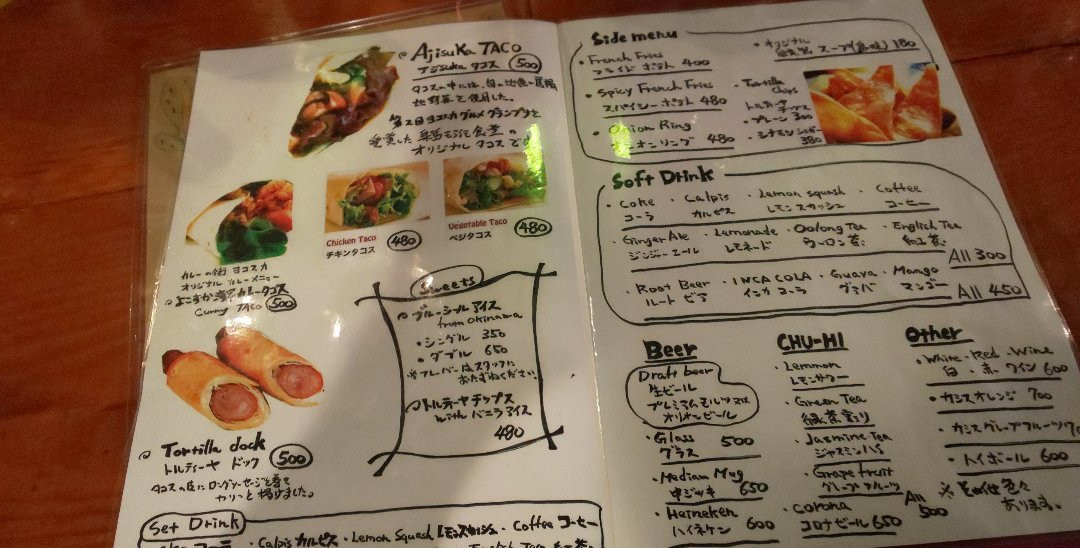 Ajisuka TACO
アジスカ タコス 500
オリジナル タコス です
Chicken Taco
チキンタコス 480
Vegetable Taco
ベジタコス 480
カレーの街 ヨコスカ
オリジナル カレーメニュー
よこすか海軍カレータコス
Curry TACO 500
Tortilla dock
トルティーヤ ドック 500
タコスの皮に ロングソーセージを巻て
カリッと揚げました。
Sweets
ブルーシールアイス
from Okinawa
・シングル 350
・ダブル 650
※フレーバーはスタッフに
おたずねください。
トルティーヤチップス
with バニラアイス
480
Set Drink
・Calpis カルピス ・Lemon Squash レモンスカッシュ ・Coffee コーヒー
Side menu
・French Fries
フライド ポテト 400
・Spicy French Fries
スパイシーポテト 480
・Onion Ring
オニオンリング 480
・オリジナル
スープ 180
・Tortilla
chips
トルティーヤ
チップス
・プレーン 300
・シナモンシュガー
380
Soft Drink
・Coke ・Calpis ・Lemon squash ・Coffee
コーラ カルピス レモンスカッシュ コーヒー
・Ginger Ale ・Lemonade ・Oolong Tea ・English Tea
ジンジャーエール レモネード ウーロン茶 紅茶
All 300
・Root Beer ・INCA COLA ・Guava ・Mango
ルート ビア インカ コーラ グァバ マンゴー
All 450
Beer
Draft beer
生ビール
プレミアムモルツ 又は
オリオンビール
・Glass 500
グラス
・Median Mug
中ジャッキ 650
・Heineken
ハイネケン 600
CHU-HI
・Lemmon
レモンサワー
・Green Tea
緑茶割り
・Jasmine Tea
ジャスミンハイ
・Grapefruit
グレープフルーツ
All
500
・Corona
コロナビール 650
Other
・White・Red・Wine
白・赤・ワイン 600
・カシスオレンジ 700
・カシスグレープフルーツ
・ハイボール 600
※その他色々
あります。